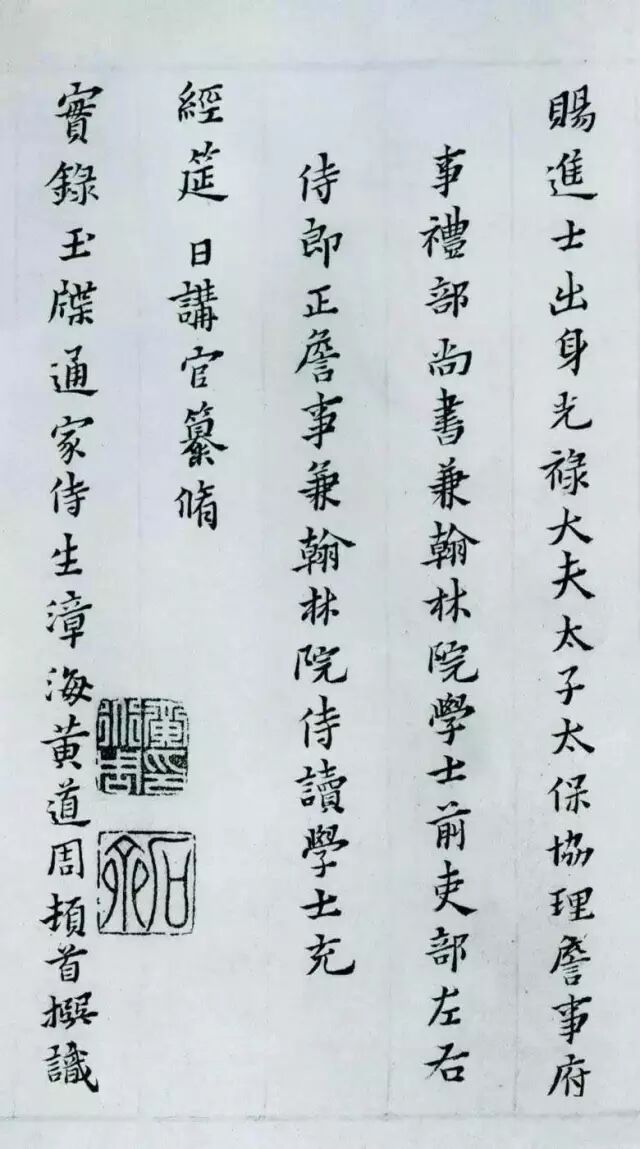 賜進士出身光祿大夫太子太保協理詹事府
事禮部尚書兼翰林院學士前吏部左右
侍郎正詹事兼翰林院侍讀學士充
經筵日講官纂脩
實錄玉牒通家侍生漳海黃道周頓首撰識
黃道周印
石齋